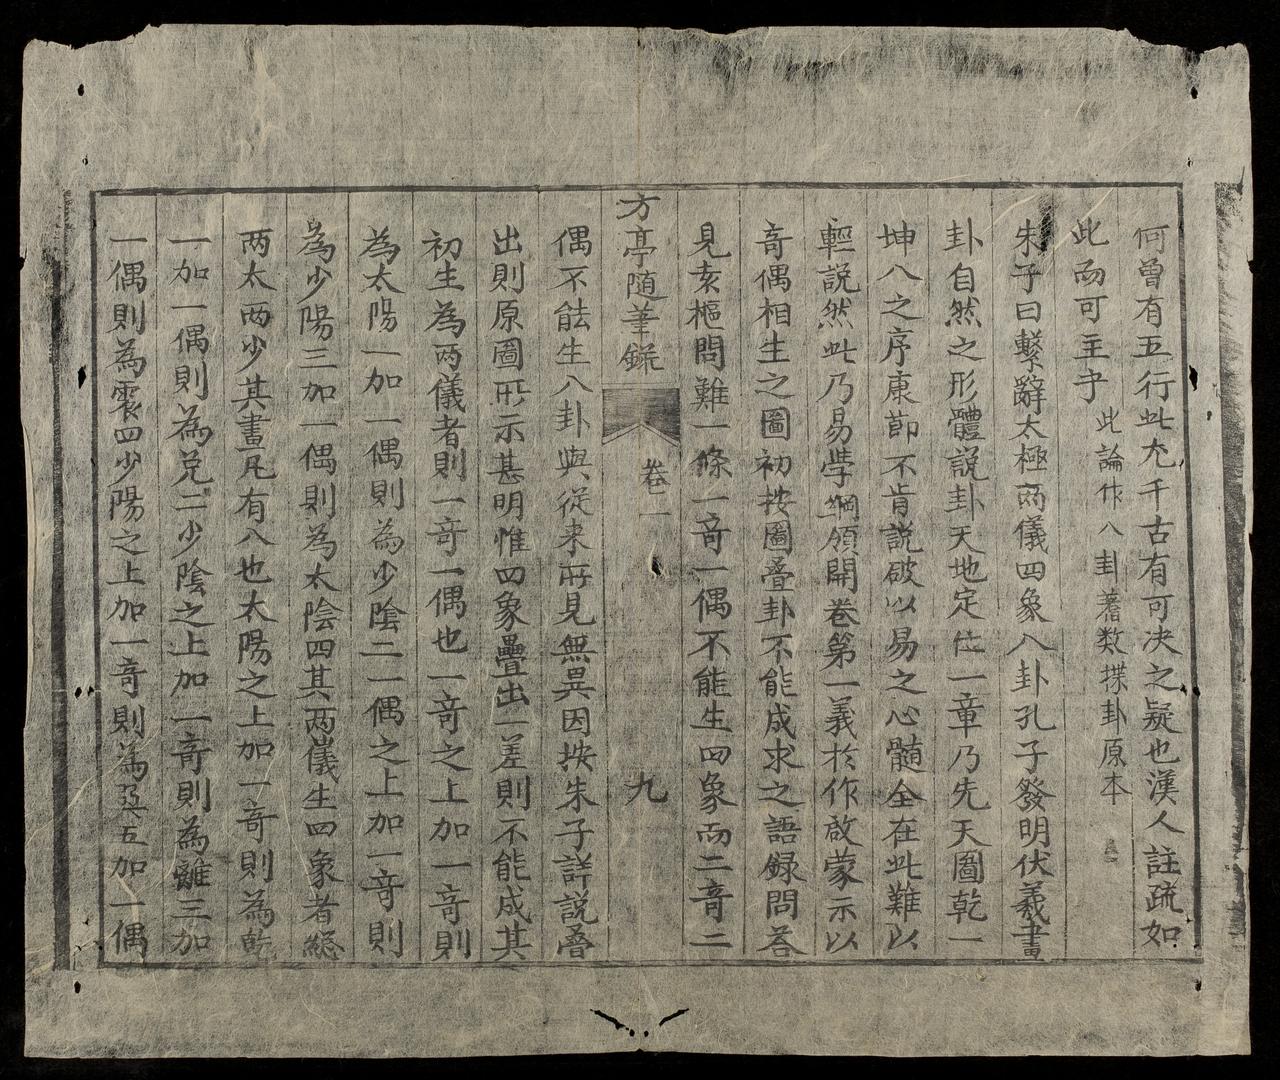 何曾有五行此尤千古有可决之疑也漢人註疏如
此而可主乎 此論作八卦蓍数揲卦原本
朱子曰繫辭太極两儀四象八卦孔子發明伏羲畫
卦自然之形體說卦天地定位一章乃先天圖乾一
坤八之序康節不肯說破以易之心髓全在此難以
輕說然此乃易學綱領開卷第一義於作啟蒙示以
奇偶相生之圖初按圖疊卦不能成求之語録問荅
見袁樞問難一條一奇一偶不能生四象而二奇二
方亭隨筆録 卷二 九
偶不能生八卦與從来所見無異因按朱子詳說疊
出則原圖所示甚明惟四象疊出一差則不能成其
初生為两儀者則一奇一偶也一奇之上加一奇則
為太陽一加一偶則為少陰二一偶之上加一奇則
為少陽三加一偶則為太陰四其两儀生四象者總
两太两少其畫凡有八也太陽之上加一奇則為乾
一加一偶則為兌二少陰之上加一奇則為離三加
一偶則為震四少陽之上加一奇則為巽五加一偶